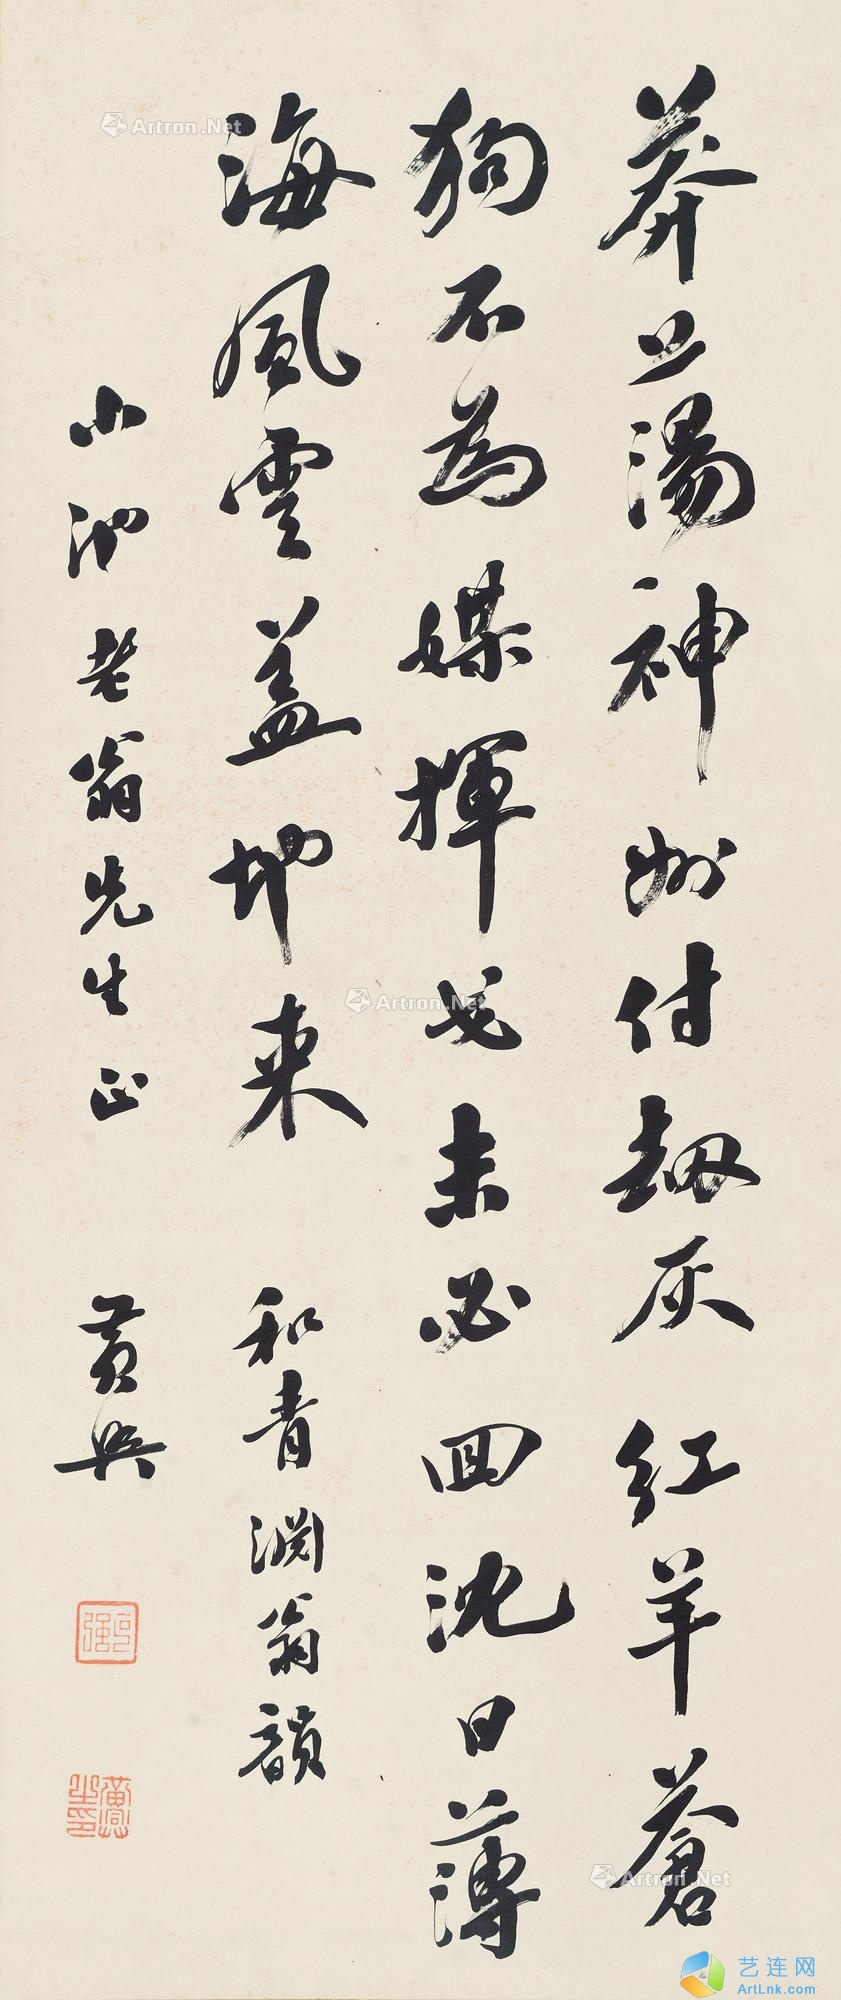 莽蕩神州付劫灰紅羊蒼
狗不為媒揮戈未必回沈日薄
海風雲盖地来 和青淵翁韻
小池老翁先生正 黃興
克強
黃興之印
Artron.Net
Artron.Net
Artron.Net
艺连网
ArtLnk.com